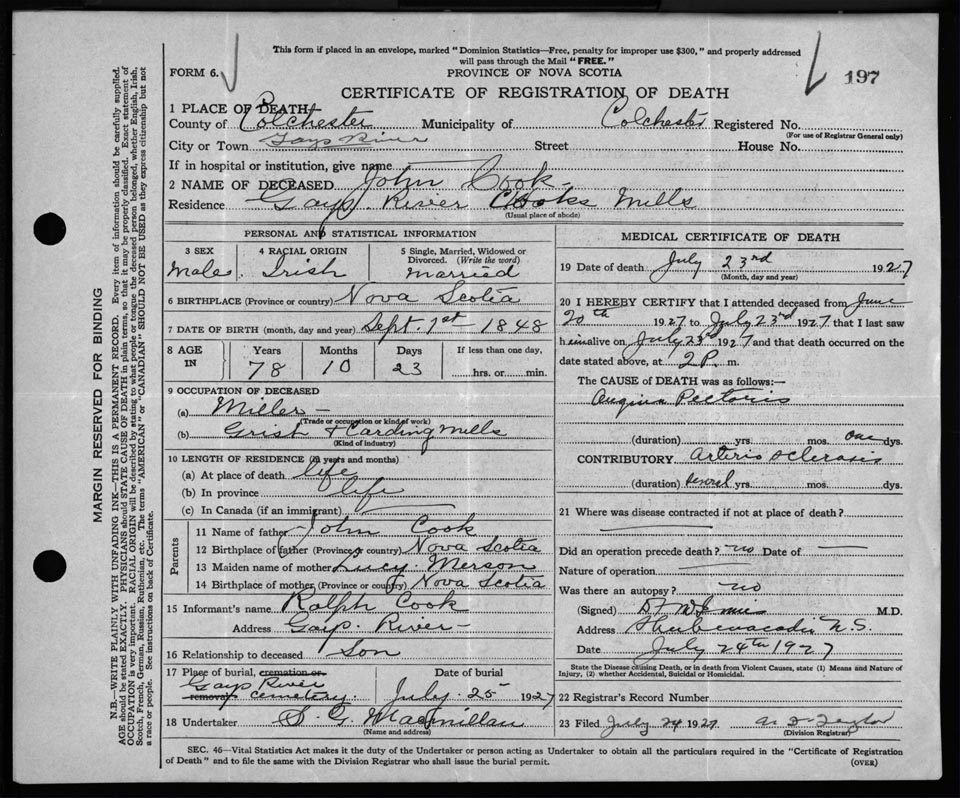 This form if placed in an envelope, marked "Dominion Statistics—Free, penalty for improper use $300," and properly addressed
will pass through the Mail "FREE."
FORM 6.
PROVINCE OF NOVA SCOTIA
197
CERTIFICATE OF REGISTRATION OF DEATH
1 PLACE OF DEATH—
County of Colchester Municipality of Colchester Registered No.
(For use of Registrar General only)
City or Town Gays River Street House No.
If in hospital or institution, give name
2 NAME OF DECEASED John Cook
Residence Gays River Cooks Mills
(Usual place of abode)
PERSONAL AND STATISTICAL INFORMATION
3 SEX 4 RACIAL ORIGIN 5 Single, Married, Widowed or Divorced. (Write the word)
Male. Irish married
6 BIRTHPLACE (Province or country) Nova Scotia
7 DATE OF BIRTH (month, day and year) Sept. 1st 1848
8 AGE IN Years Months Days If less than one day,
78 10 23 hrs. or min.
9 OCCUPATION OF DECEASED
(a) Miller—
(Trade or occupation or kind of work)
(b) Grish & Carding mills
(Kind of industry)
10 LENGTH OF RESIDENCE (in years and months)
(a) At place of death life
(b) In province life
(c) In Canada (if an immigrant)
Parents
11 Name of father John Cook
12 Birthplace of father (Province or country) Nova Scotia
13 Maiden name of mother Lucy Merson
14 Birthplace of mother (Province or country) Nova Scotia
15 Informant's name Ralph Cook
Address Gays River—
16 Relationship to deceased Son
17 Place of burial, cremation or removal Date of burial
Gays River cemetery. July 25 1927
18 Undertaker S. G. Macmillan
(Name and address)
MEDICAL CERTIFICATE OF DEATH
19 Date of death July 23rd 1927
(Month, day and year)
20 I HEREBY CERTIFY that I attended deceased from June
20th 1927 to July 23rd 1927 that I last saw
him alive on July 23rd 1927 and that death occurred on the
date stated above, at 2 P. m.
The CAUSE of DEATH was as follows:—
Angina Pectoris
(duration) yrs. mos. one dys.
CONTRIBUTORY Arterio sclerosis
(duration) several yrs. mos. dys.
21 Where was disease contracted if not at place of death?
Did an operation precede death? no Date of
Nature of operation
Was there an autopsy? no
(Signed) M.D.
Address Shubenacadie N.S.
Date July 24th 1927
State the Disease causing Death, or in death from Violent Causes, state (1) Means and Nature of
Injury, (2) whether Accidental, Suicidal or Homicidal.
22 Registrar's Record Number
23 Filed July 24 1927. Taylor
(Division Registrar)
SEC. 46—Vital Statistics Act makes it the duty of the Undertaker or person acting as Undertaker to obtain all the particulars required in the "Certificate of Registration
of Death" and to file the same with the Division Registrar who shall issue the burial permit.
(OVER)
MARGIN RESERVED FOR BINDING
N.B.—WRITE PLAINLY WITH UNFADING INK—THIS IS A PERMANENT RECORD. Every item of information should be carefully supplied.
AGE should be stated EXACTLY. PHYSICIANS should STATE CAUSE OF DEATH in plain terms, so that it may be properly classified. Exact statement of
OCCUPATION is very important. RACIAL ORIGIN will be described by stating to what people or tongue the deceased person belonged, whether English, Irish,
Scotch, French, German, Russian, Ruthenian, etc. The terms "AMERICAN" or "CANADIAN" SHOULD NOT BE USED as they express citizenship but not
a race or people. See instructions on back of Certificate.